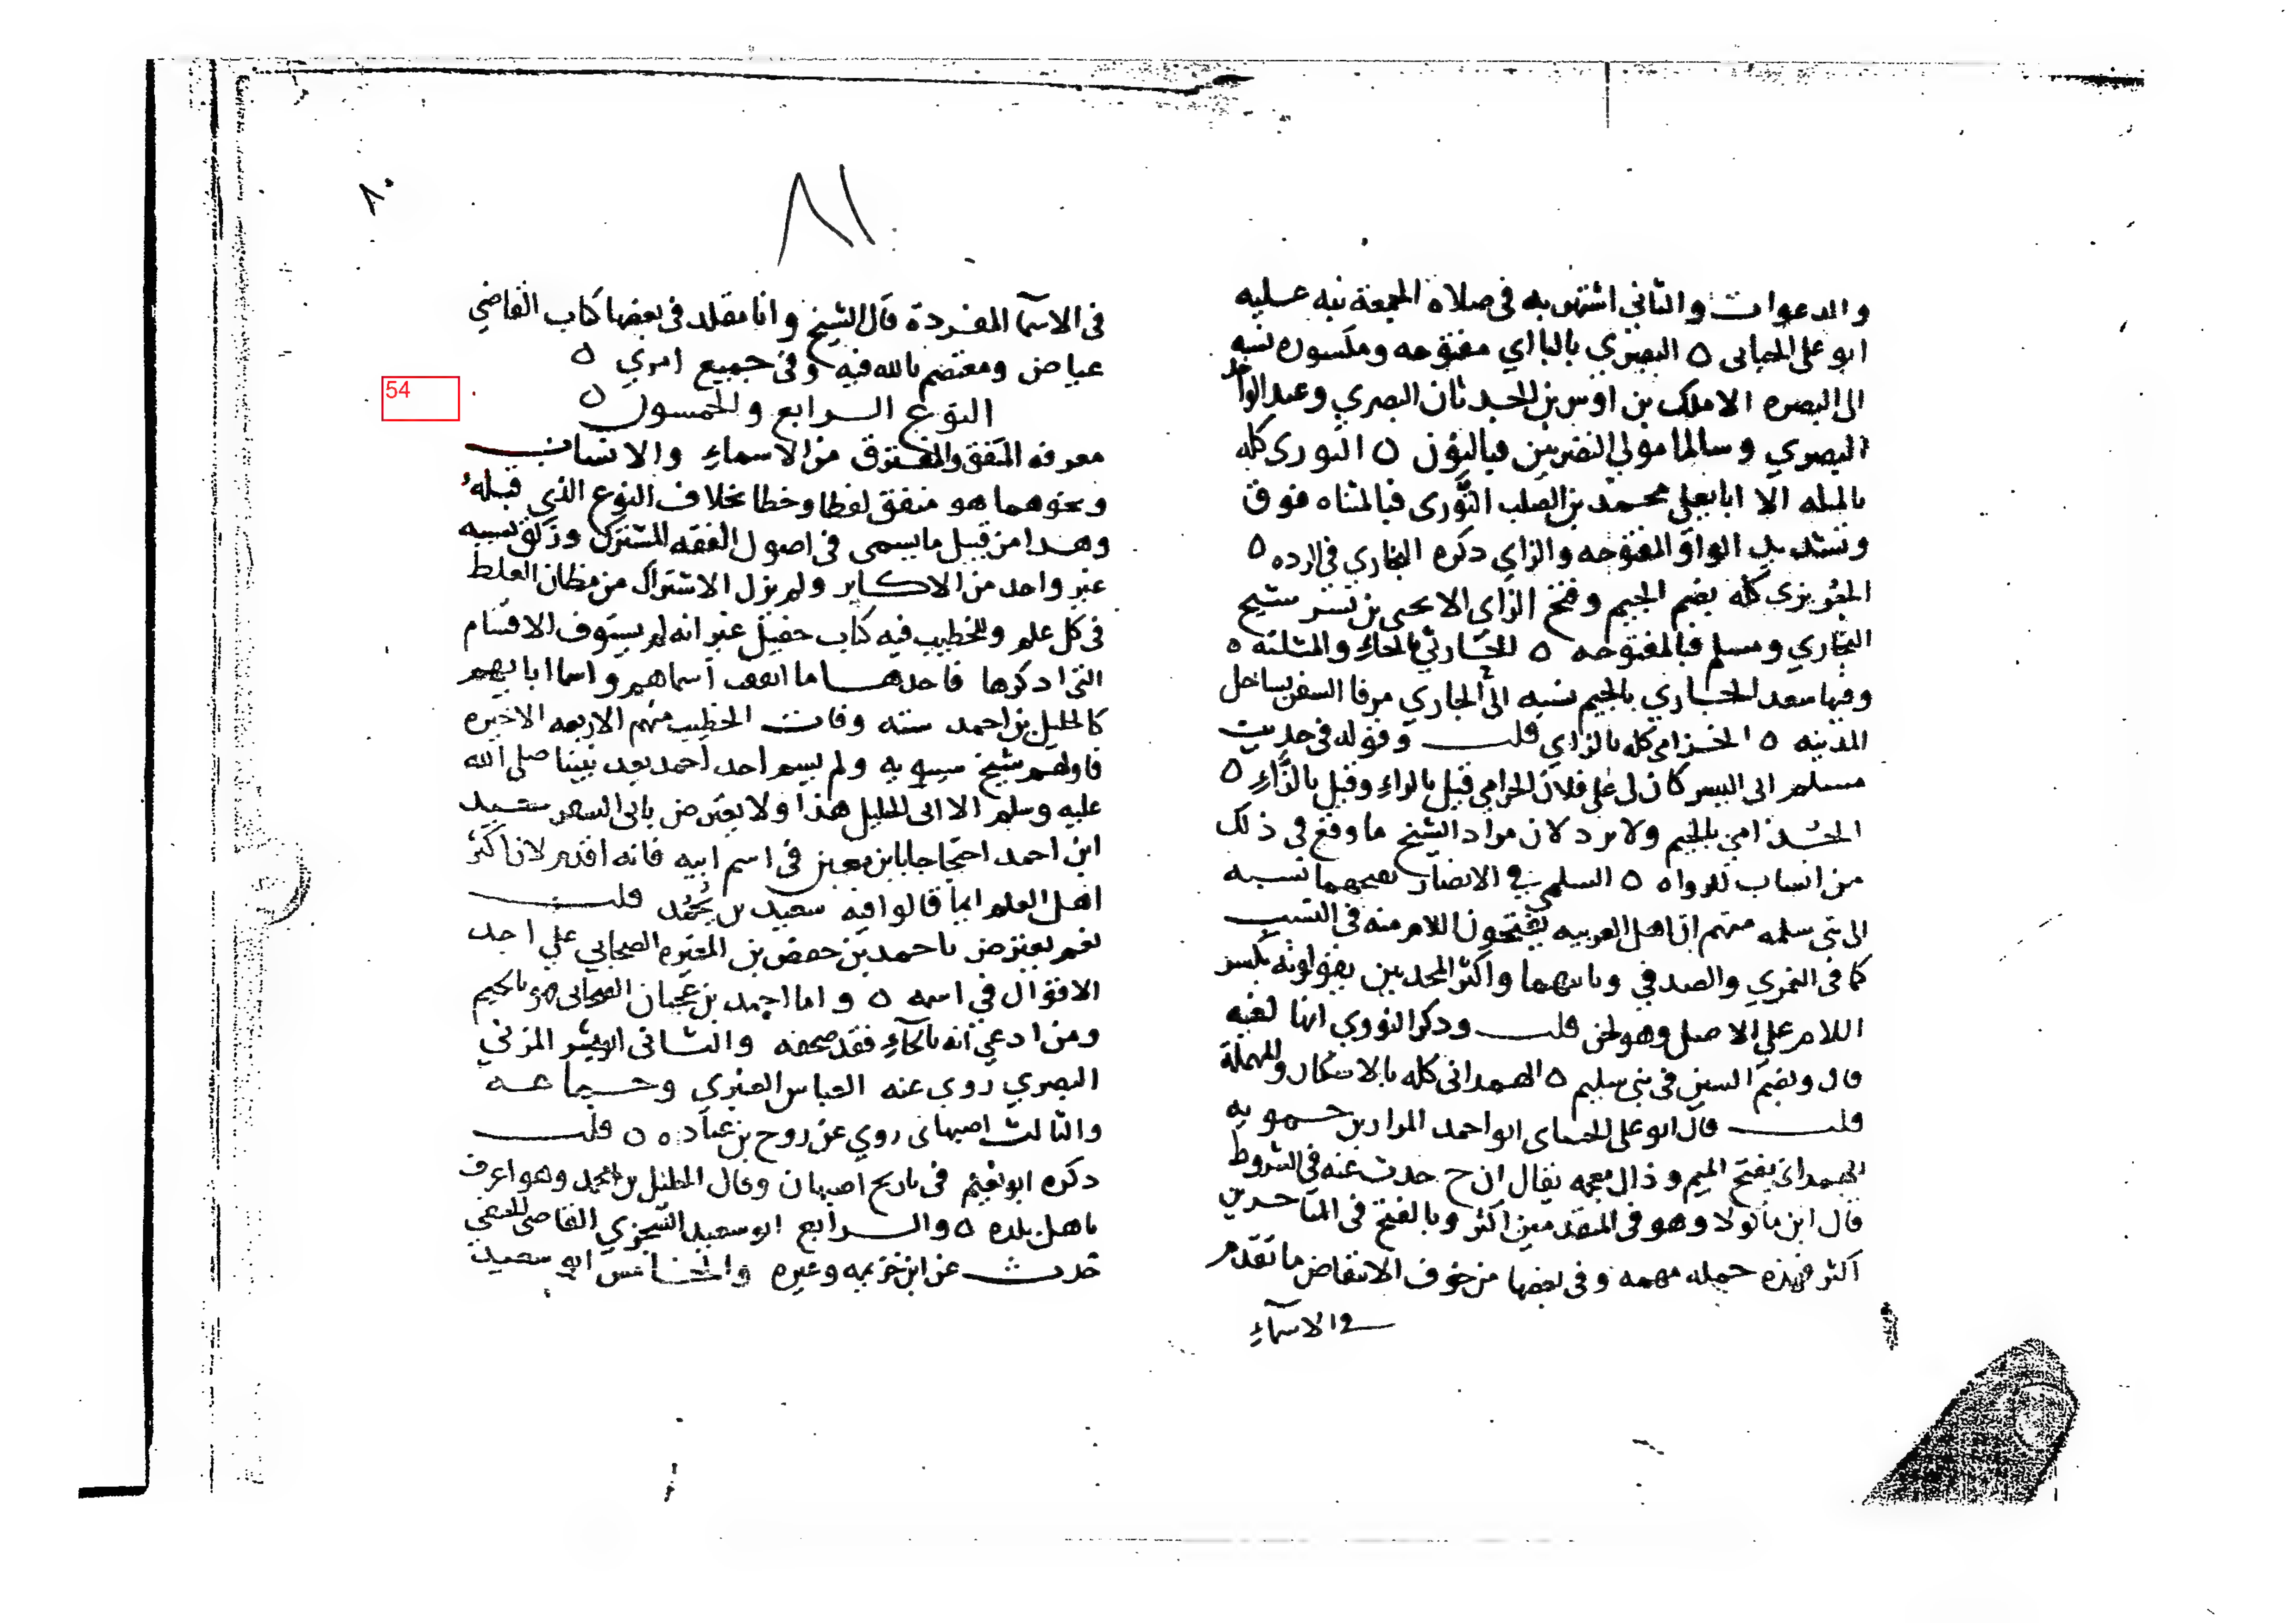 والدعوات والثاني اشتهر به في صلاة الجمعة نبه عليه
ابو على الجيانى ٥ البصري بالباء اي مفتوحه ومكسوره نسبه
الى البصره الا ملك بن اوس بن الحدثان البصري وعبد الواحد
البصري وسالما مولي النصريين فبالنون ٥ الثورى كله
بالمثلثه الا ابا يعلي محمد بن الصلت التَّوَّزى فبالمثناه فوق
وتشديد الواو المفتوحه والزاي ذكره البخاري في الرده ٥
الجُريرى كله بضم الجيم وفتح الراى الا يحيى بن بشر شيخ
البخاري ومسلم فبالمفتوحه ٥ الحارثي بالحاء والمثلثه ٥
وفيها سعد الجاري بالجيم نسبه الى الجاري مرفا السفن بساحل
المدينه ٥ الحزامى كله بالزاي قلت وقوله في حديث
مسلم ابى اليسر كان لى على فلان الحرامي قيل بالراء وقيل بالزاء ٥
الجذامي بالجيم ولا يرد لان مراد الشيخ ما وقع في ذلك
من انساب الرواه ٥ السلمي في الانصار بفتحهما نسبه
الى بنى سلمه منهم ان اهل العربيه يفتحون اللام منه فى النسب
كما فى النمري والصدفي وبابهما واكثر المحدثين يقولونه بكسر
اللام علي الاصل وهو لحن قلت وذكر النووي انها لغيه
قال وبضم السين فى بنى سليم ٥ الهمدانى كله بالاسكان والمهملة
قلت قال ابو على الجيانى ابو احمد المرار بن حمويه
الهمذانى بفتح الميم وذال معجمه يقال ان خ حدث عنه في الشروط
قال ابن ماكولا وهو فى المتقدمين اكثر وبالفتح فى المتاخرين
اكثر فهذه جمله مهمه وفى بعضها من خوف الانتقاض ما تقدم
في الاسماء
٨٠
٨١
فى الاسما المفردة قال الشيخ وانا مقلد فى بعضها كتاب القاضي
عياض ومعتصم بالله فيه وفى جميع امري ٥
54
النوع الرابع والخمسون ٥
معرفه المتفق والمفترق من الاسماء والانساب
ونحوهما هو متفق لفظا وخطا بخلاف النوع الذي قبله
وهذا من قبيل ما يسمى فى اصول الفقه المشترك وزلق بسببه
غير واحد من الاكابر ولم يزل الاشتراك من مظان الغلط
فى كل علم وللخطيب فيه كتاب حفيل غير انه لم يستوف الاقسام
التى اذكرها فاحدها ما اتفقت اسماهم واسما ابايهم
كالخليل بن احمد سته وفات الخطيب منهم الاربعه الاخيره
فاولهم شيخ سيبويه ولم يسم احد احمد بعد نبينا صلى الله
عليه وسلم الا ابى الخليل هذا ولا يعترض بابى السفر سعيد
ابن احمد احتجاجا بابن معين فى اسم ابيه فانه اقدم لان اكثر
اهل العلم انما قالوا فيه سعيد بن يُحْمِد قلت
نعم يعترض باحمد بن حفص بن المغيره الصحابي علي احد
الاقوال في اسمه ٥ واما احمد بن عجيان الصحابى فهو بالجيم
ومن ادعي انه بالحاء فقد صحفه والثانى ابو بشر المزني
البصري روى عنه العباس العنبري وجماعه
والثالث اصبهانى روي عن روح بن عباده ٥ قلت
ذكره ابو نعيم فى تاريخ اصبهان وقال الخليل بن محمد وهو اعرف
باهل بلده ٥ والرابع ابو سعيد السجزي القاضى الحنفي
حدث عن ابن خزيمه وغيره والخامس ابو سعيد